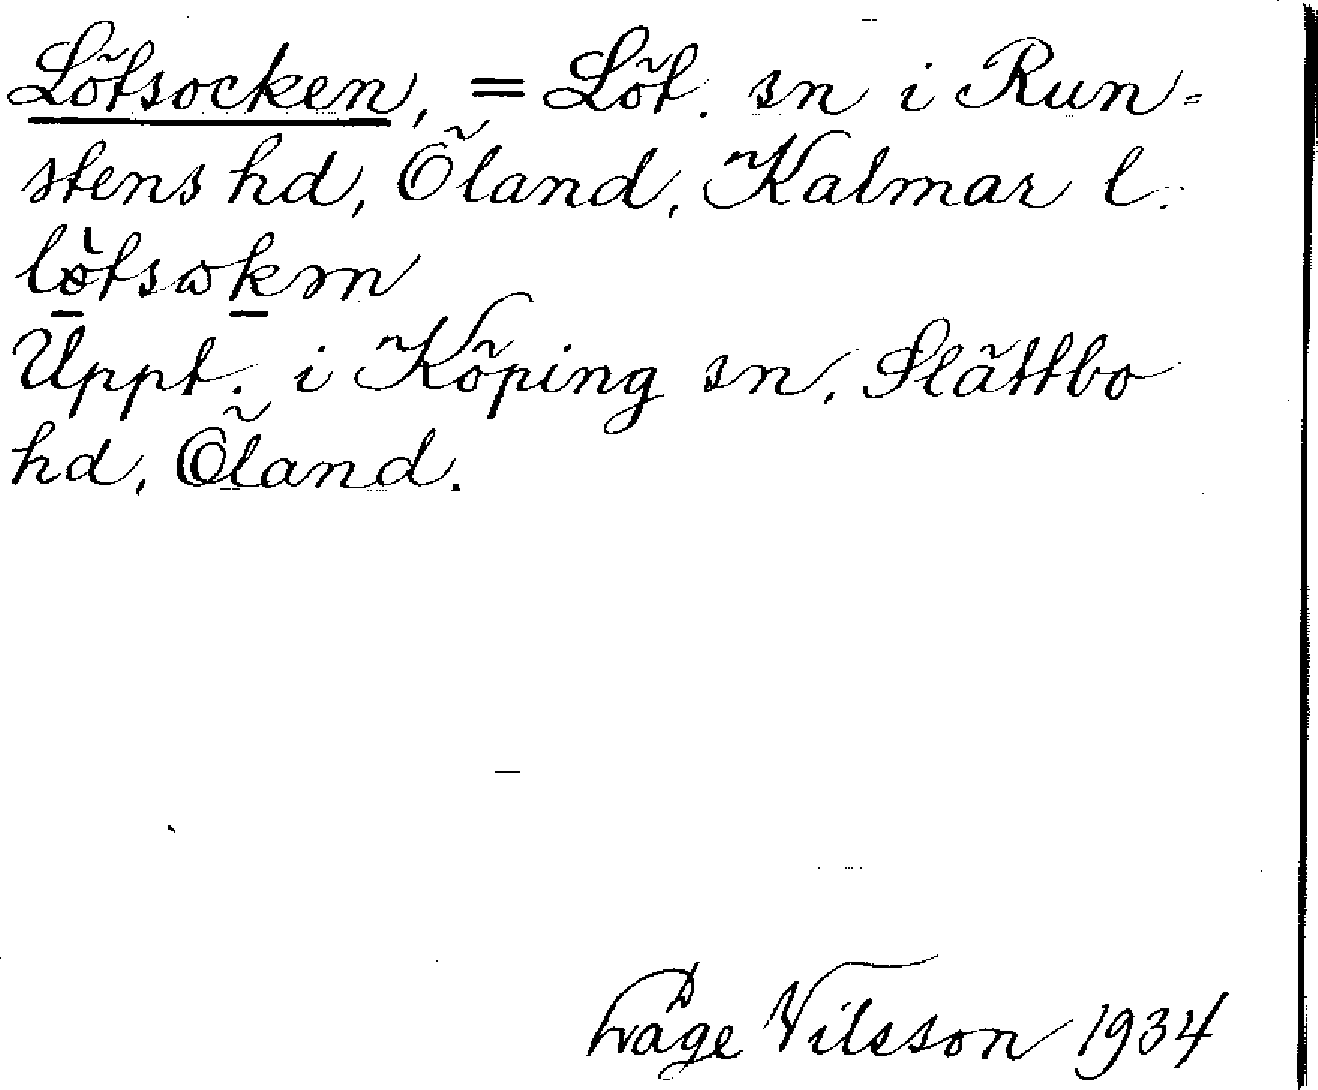 Lötsocken, = Löt. sn i Run-
stens hd, Öland, Kalmar l.
Uppt. i Köping sn, Slättbo
hd, Öland.
Nilsson 1934